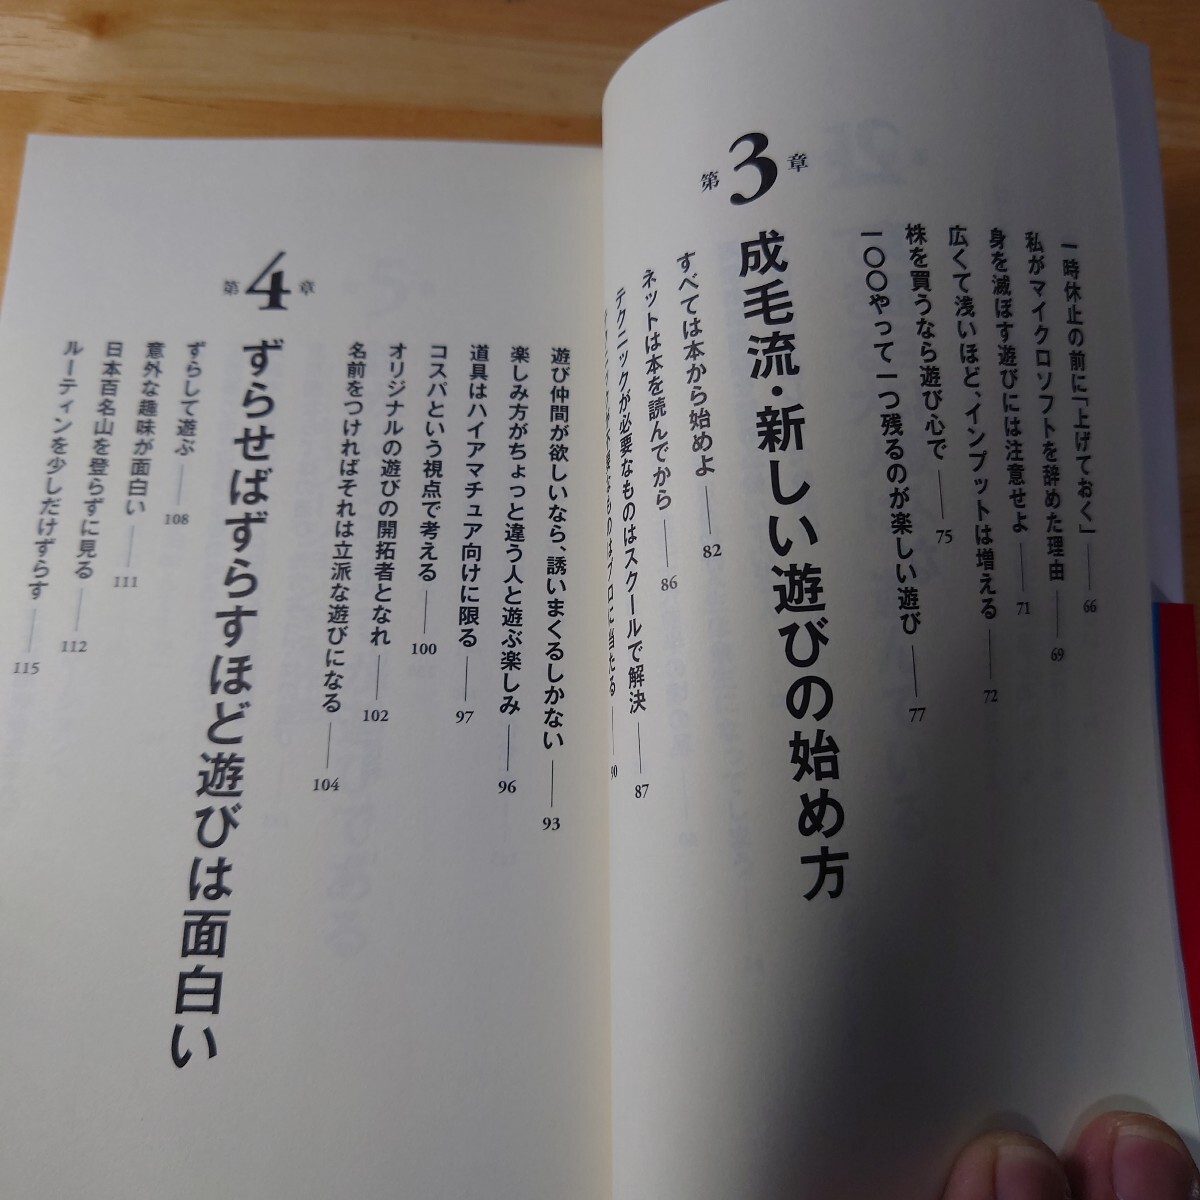 一時休止の前に「上げておく」 66
私がマイクロソフトを辞めた理由 69
身を滅ぼす遊びには注意せよ 71
広くて浅いほど、インプットは増える 72
株を買うなら遊び心で 75
一〇〇やって一つ残るのが楽しい遊び 77
第3章
成毛流・新しい遊びの始め方
すべては本から始めよ 82
ネットは本を読んでから 86
テクニックが必要なものはスクールで解決 87
ものはプロに当たる 90
遊び仲間が欲しいなら、誘いまくるしかない 93
楽しみ方がちょっと違う人と遊ぶ楽しみ 96
道具はハイアマチュア向けに限る 97
コスパという視点で考える 100
オリジナルの遊びの開拓者となれ 102
名前をつければそれは立派な遊びになる 104
第4章
ずらせばずらすほど遊びは面白い
ずらして遊ぶ 108
意外な趣味が面白い 111
日本百名山を登らずに見る 112
ルーティンを少しだけずらす 115